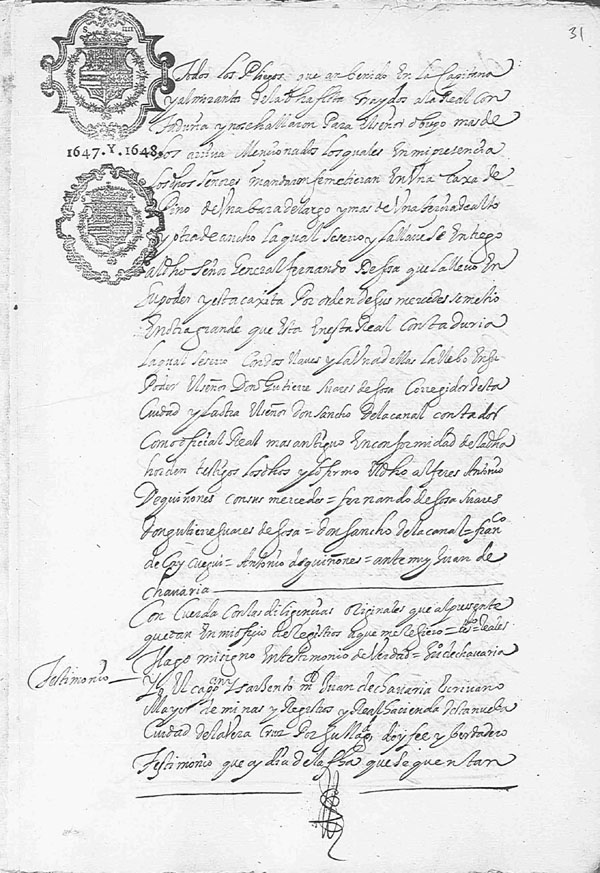 31
1647. Y. 1648.
Todos los Pliegos que an benido En la Capitana
y almiranta de la dha flota traydos a la Real Con
taduria y no se hallaron Para el señor obispo mas de
los arriva Mencionados los quales En mi presencia
los dhos señores mandaron se metieran En Una Caxa de
Pino de Una bara de largo y mas de Una terzia de alto
y otra de ancho la qual se serro y la llave se Entrego
al dho Señor General fernando de sosa que la llevo En
su poder y esta caxita Por orden de sus mercedes se metio
En otra grande que Esta En esta Real Contaduria
la qual se serro Con dos llaves y la Una dellas la llebo En su
Poder El señor Don Gutierre suares de sosa Corregidor desta
Ciudad y la otra El señor don sancho de la canal contador
Como oficial Real mas antiguo En conformidad de la dha
horden testigos los dhos y lo firmo El dho alferes Antonio
De quiñones con sus mercedes = fernando de sosa suares
don gutierre suares de sosa = don sancho de la canal = fran^co
de = Antonio de quiñones = ante my Juan de
chavaria
Con Cuerda Con las diligencias originales que al presente
quedan En mi ofiçio de Registros a que me Refiero = Reales
Hago mi signo En testimonio de Verdad = de chavaria
Testimonio
Yo El Sarjento m^r Juan de chavaria Escrivano
Mayor de minas y Registros y Real hacienda desta nueba
Ciudad de la Vera Cruz Por su Mag^d doy fee y berdadero
Testimonio que oy dia de la fha que se quentan